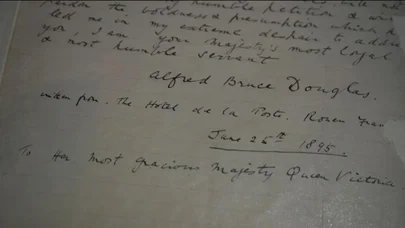 humble petition & will not
pardon the boldness & presumption which has
led me in my extreme despair to address
you, I am your Majesty's most loyal
& most humble servant
Alfred Bruce Douglas.
written from. The Hotel de la Poste. Rouen
June 25th 1895.
To Her most gracious Majesty Queen Victoria.